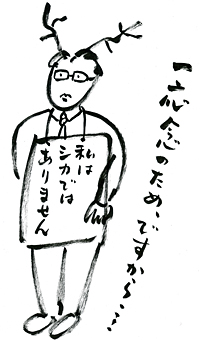 一応念のため、ですから、…
私は
シカでは
ありません